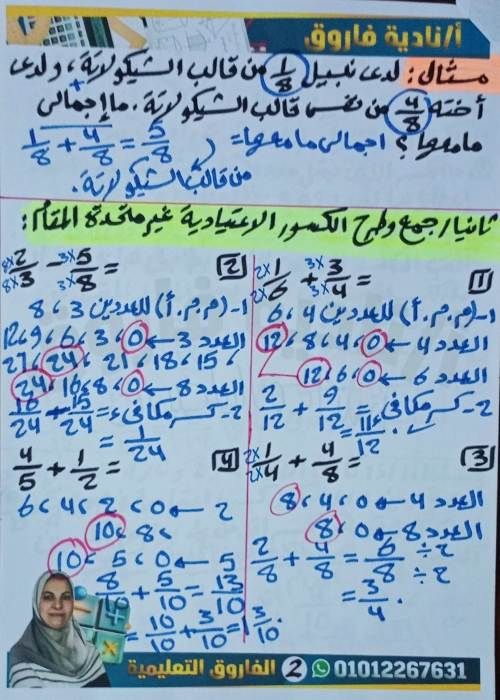 أ/نادية فاروق
مثال: لدى نبيل 1/8 من قالب الشيكولاتة، ولدى
أخته 4/8 من نفس قالب الشيكولاتة. ما إجمالى
ما معهما؟ إجمالى ما معهما = 1/8 + 4/8 = 5/8
من قالب الشيكولاتة.
ثانيا/ جمع وطرح الكسور الاعتيادية غير متحدة المقام:
1 2×1/2×6 + 3×3/3×4 =
1- (م.م.أ) للعددين 4، 6
العدد 4 ← 0، 4، 8، 12
العدد 6 ← 0، 6، 12
2- كسر مكافئ = 2/12 + 9/12
= 11/12.
2 8×2/8×3 - 3×5/3×8 =
1- (م.م.أ) للعددين 3، 8
العدد 3 ← 0، 3، 6، 9، 12
، 15، 18، 21، 24، 27
العدد 8 ← 0، 8، 16، 24
2- كسر مكافئ = 16/24 - 15/24
= 1/24
3 2×1/2×4 + 4/8 =
العدد 4 ← 0، 4، 8
العدد 8 ← 0، 8
2/8 + 4/8 = 6/8 ÷2 ÷2
= 3/4.
4 4/5 + 1/2 =
2 ← 0، 2، 4، 6
، 8، 10
5 ← 0، 5، 10
8/10 + 5/10 = 13/10
= 10/10 + 3/10 = 1 3/10
01012267631 2 الفاروق التعليمية